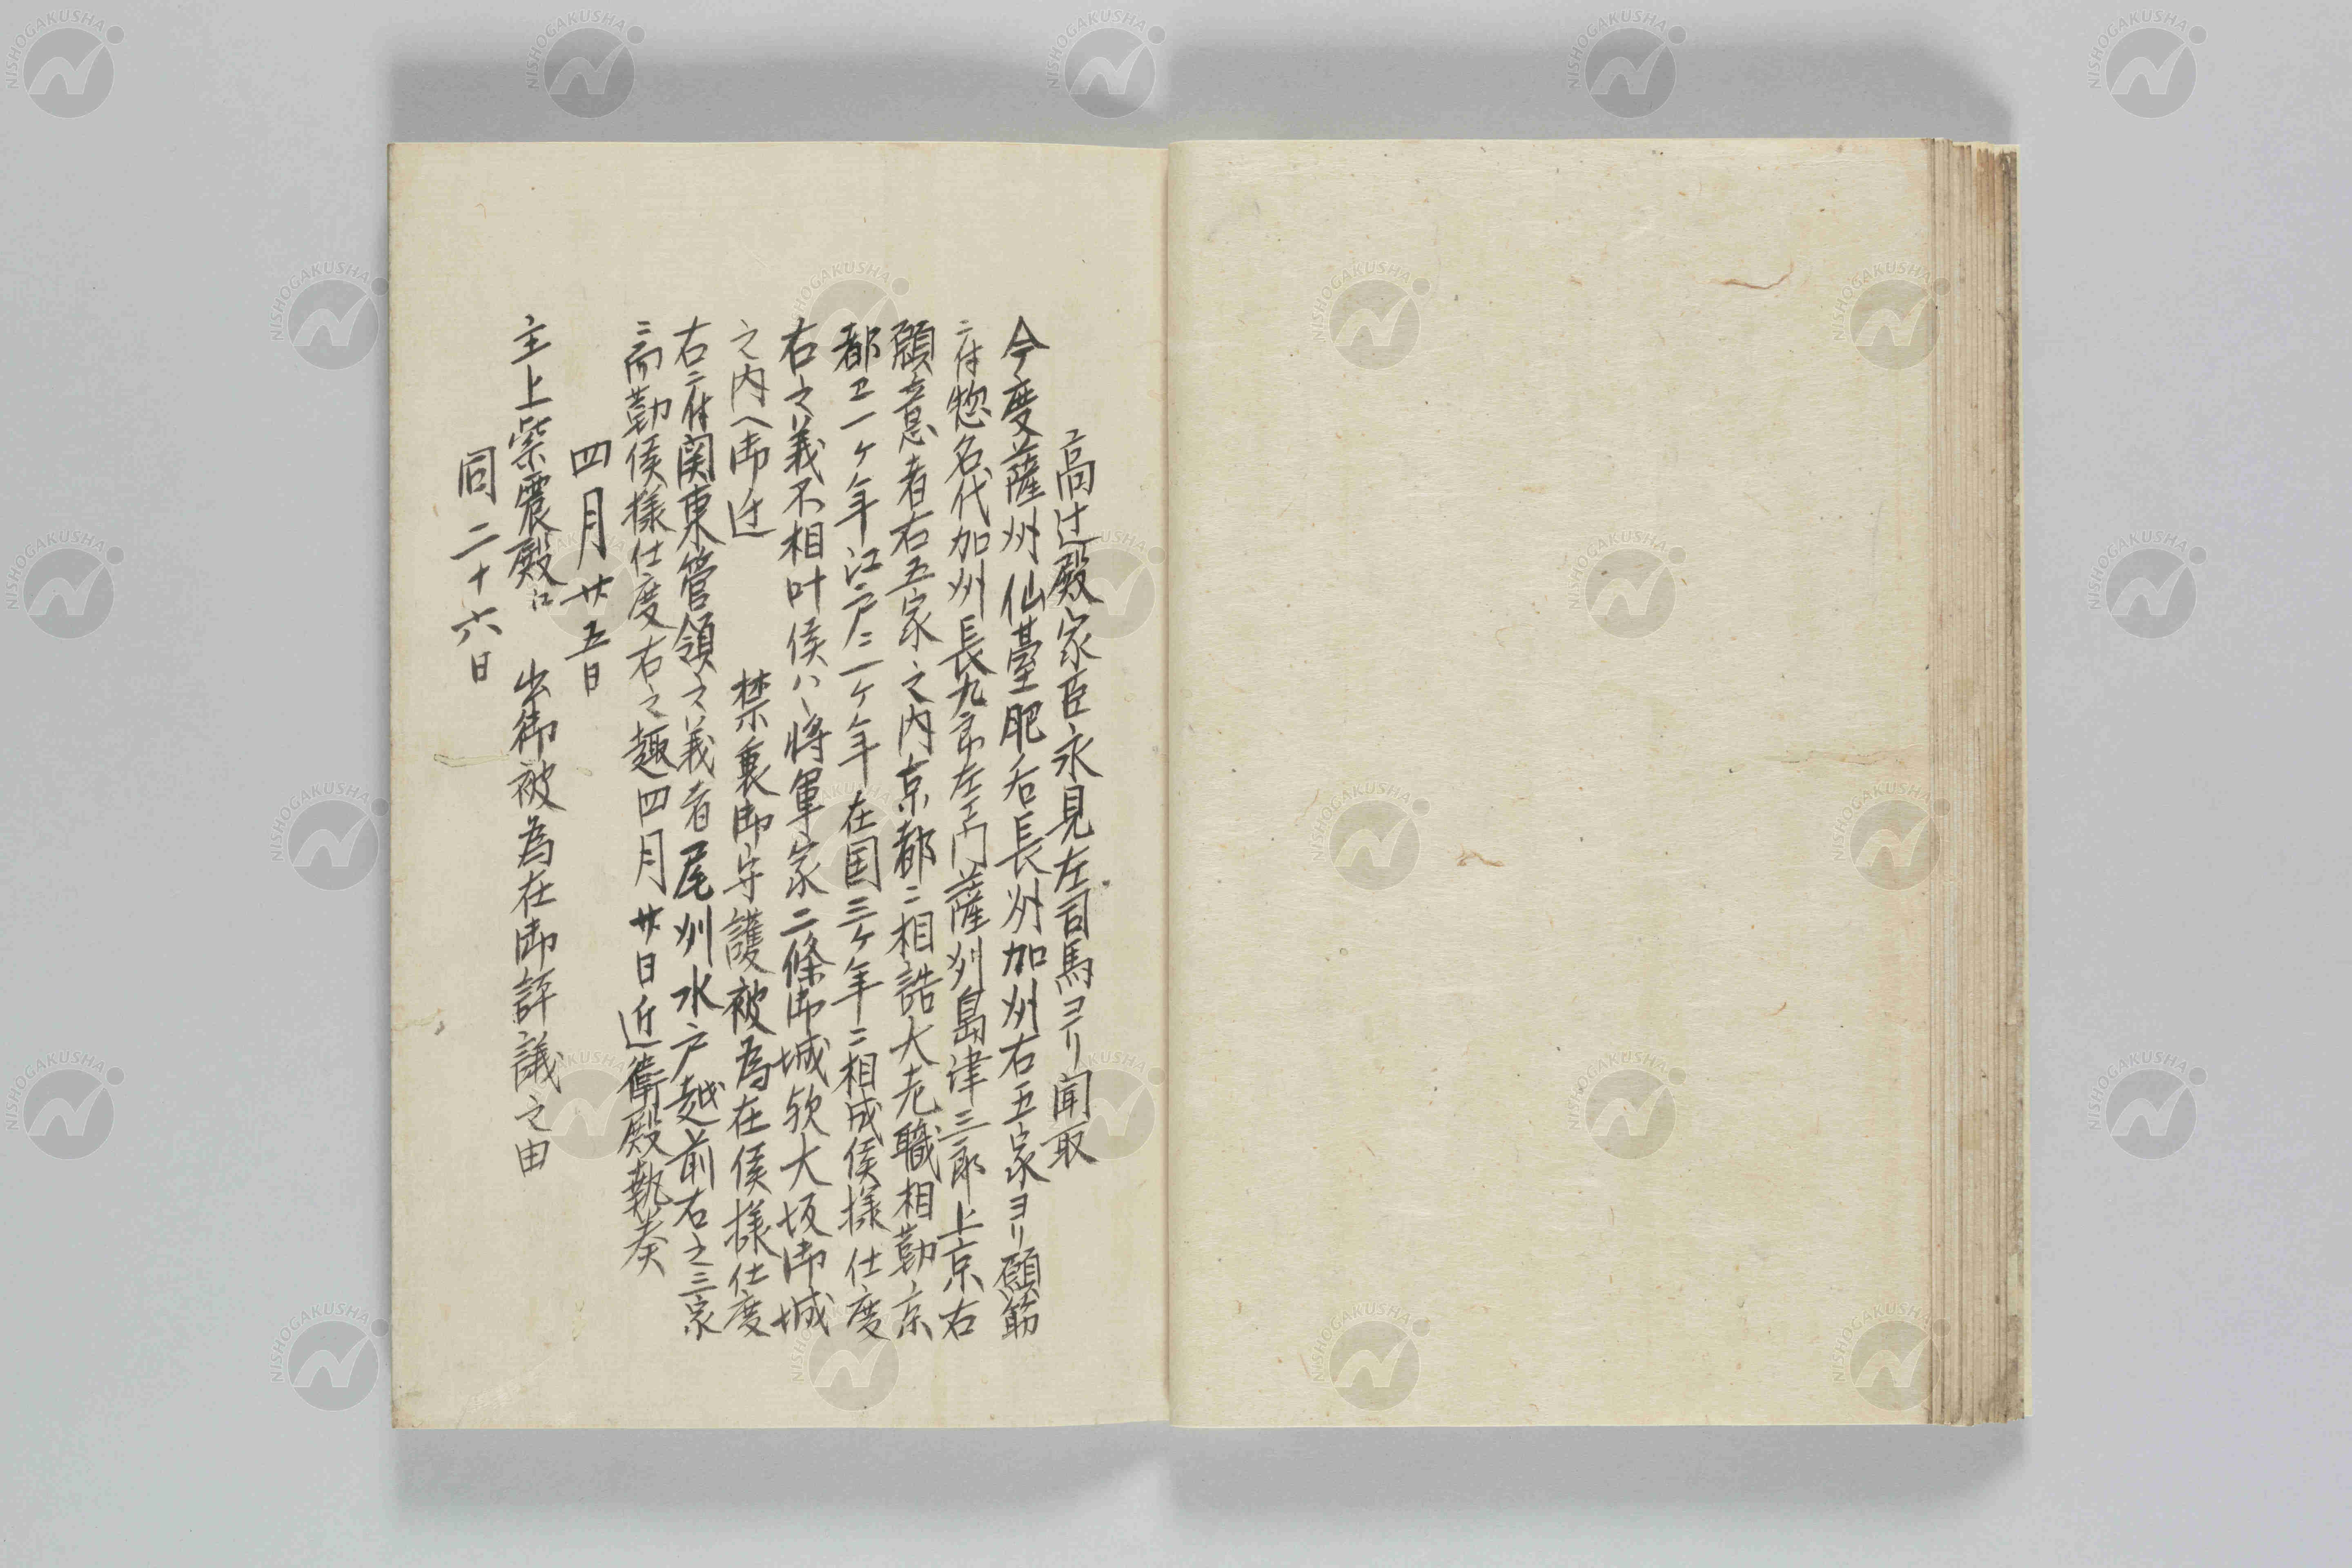 高辻殿家臣永見左司馬ヨリ聞取
今度薩州仙臺肥后長州加州右五家ヨリ願筋
ニ付惣名代加州長九郎左エ門薩州島津三郎上京右
願意者右五家之内京都ニ相詰大老職相勤京
都ヱ一ケ年江戸ニ一ケ年在国三ケ年ニ相成候様仕度
右之義不相叶候ハヽ将軍家二條御城欤大坂御城
之内へ御迁 禁裏御守護被為在候様仕度
右ニ付関東管領之義者尾州水戸越前右之三家
ニ而勤候様仕度右之趣四月廿日近衛殿執奏
四月廿五日
主上紫震殿江 出御被為在御評議之由
同二十六日
NISHOGAKUSHA